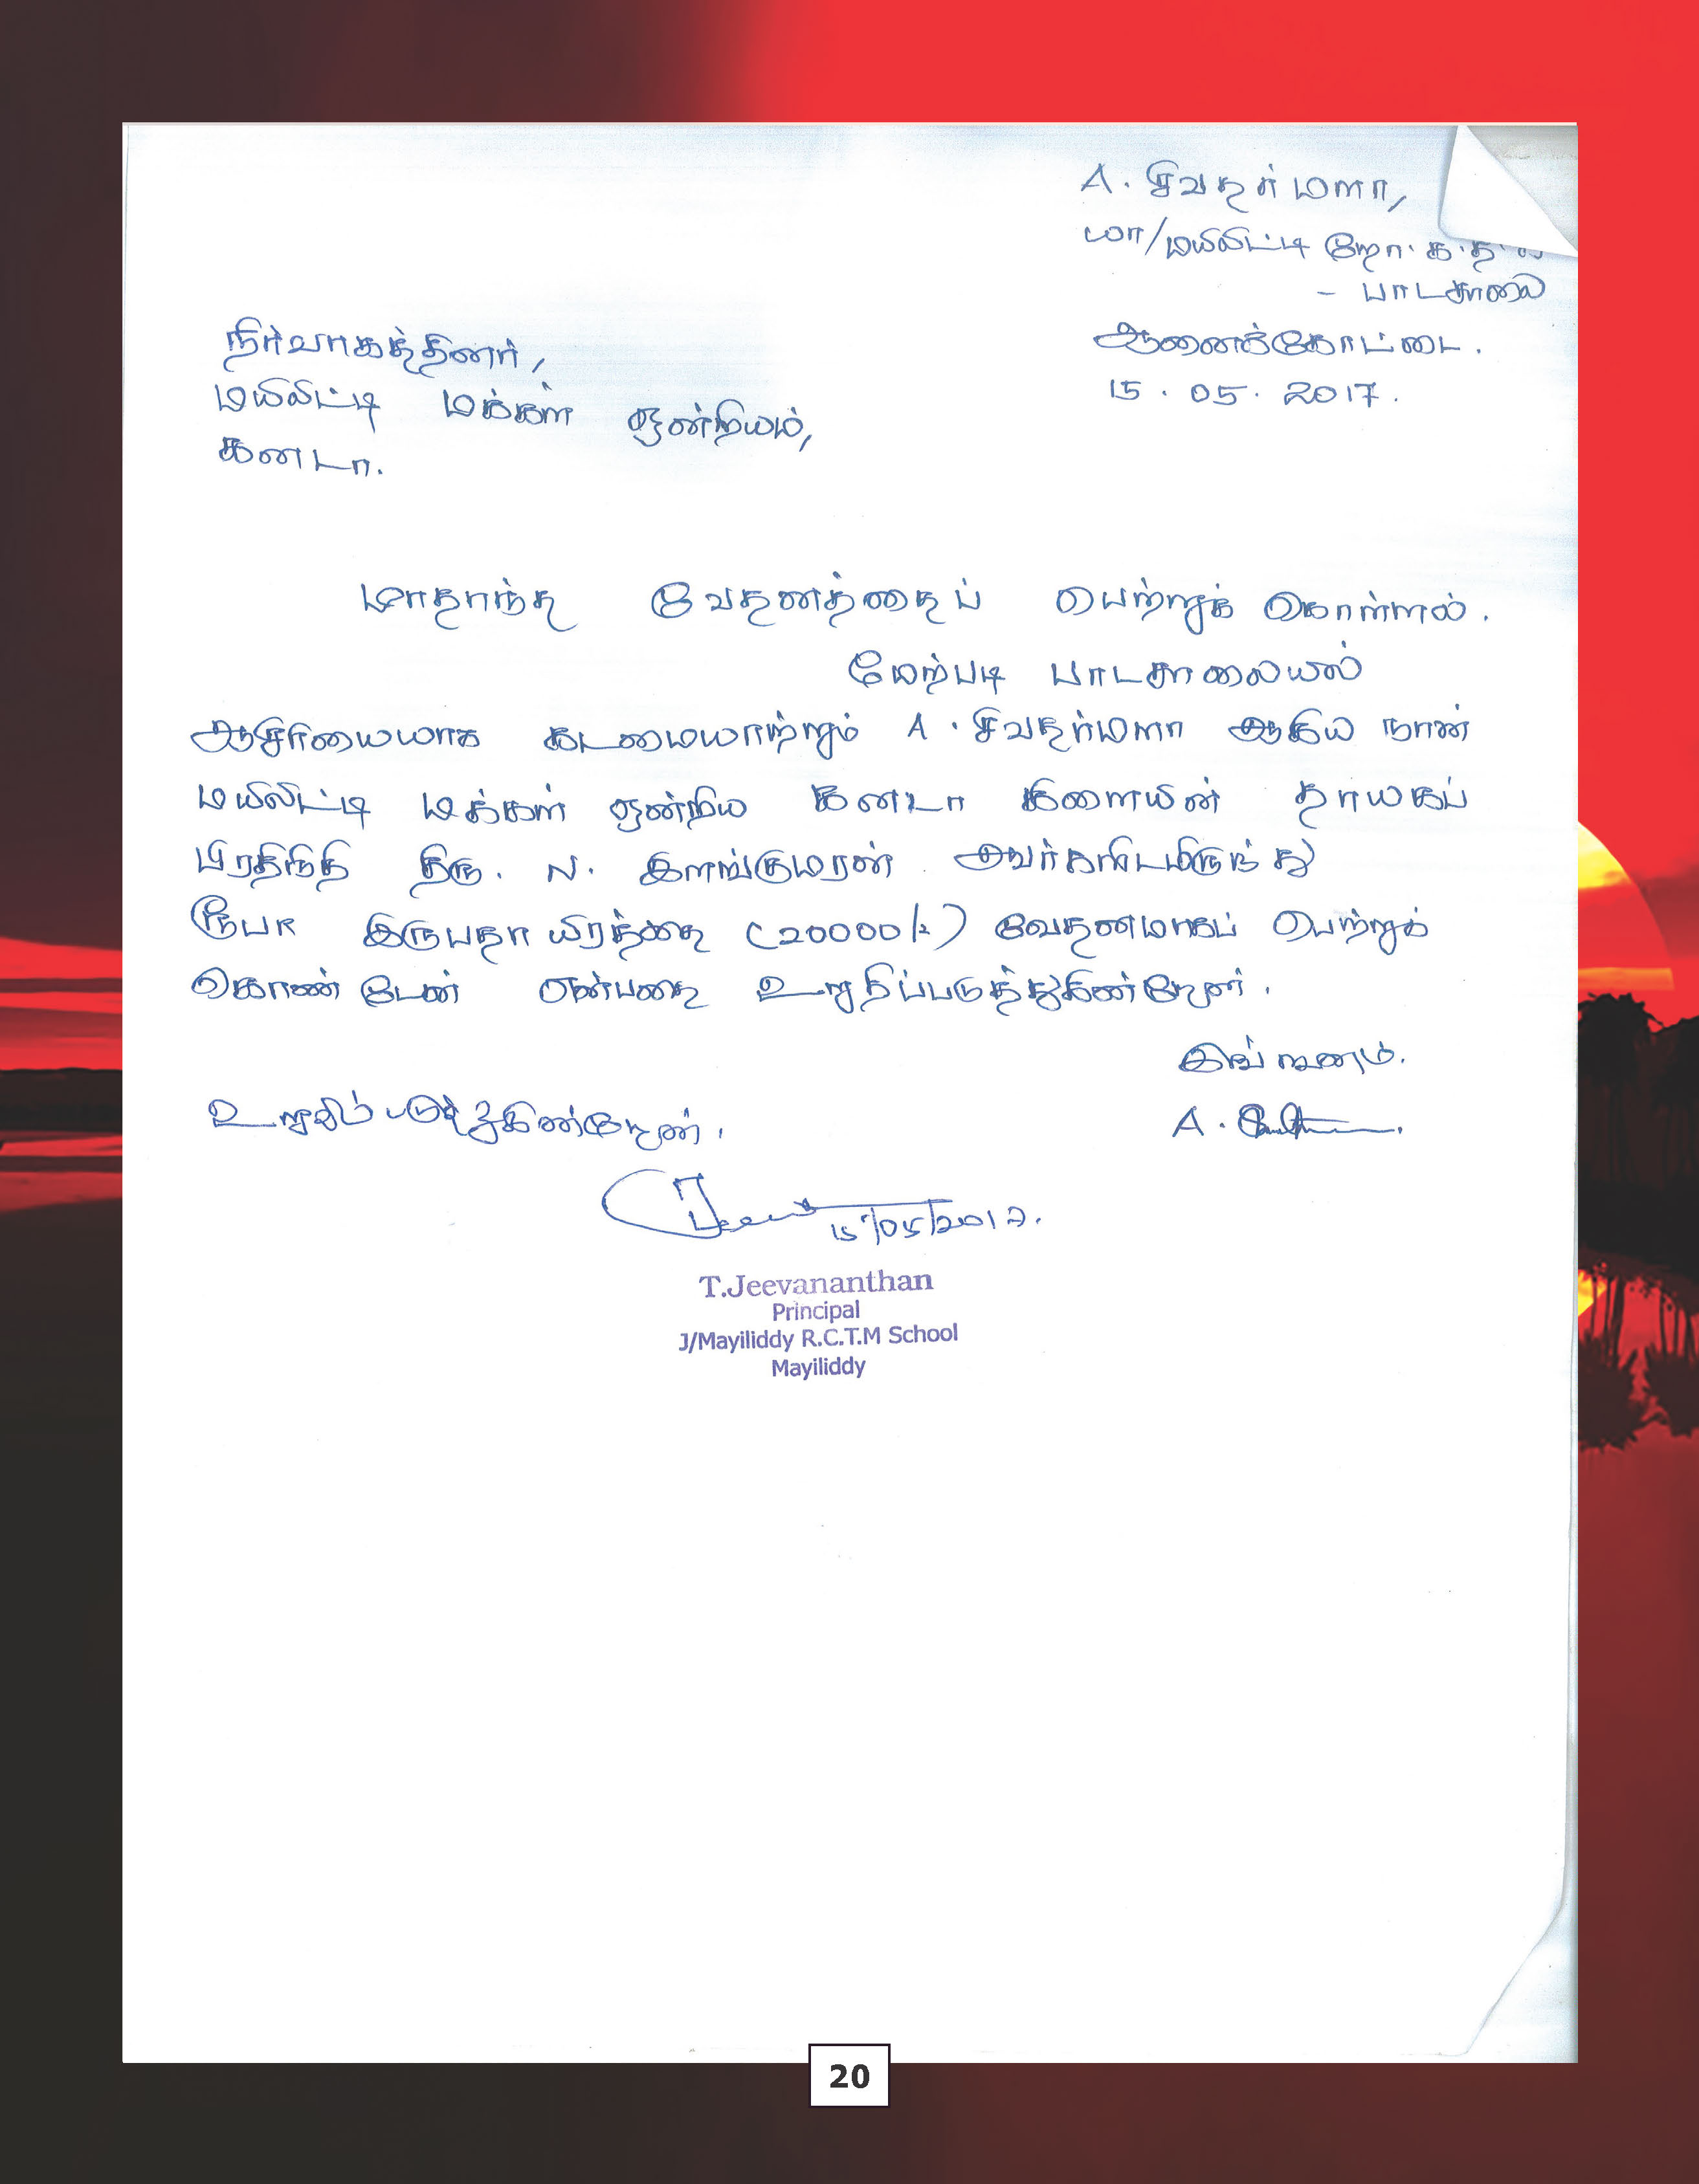 A. சிவதர்மளா,
யா/மயிலிட்டி றோ.க.த
- பாடசாலை
ஆனைக்கோட்டை.
15.05.2017.
நிர்வாகத்தினர்,
மயிலிட்டி மக்கள் ஒன்றியம்,
கனடா.
மாதாந்த வேதனத்தைப் பெற்றுக் கொள்ளல்.
மேற்படி பாடசாலையில்
ஆசிரியையாக கடமையாற்றும் A. சிவதர்மளா ஆகிய நான்
மயிலிட்டி மக்கள் ஒன்றிய கனடா கிளையின் தாயகப்
பிரதிநிதி திரு. ந. இளங்குமரன் அவர்களிடமிருந்து
ரூபா இருபதாயிரத்தை (20000/=) வேதனமாகப் பெற்றுக்
கொண்டேன் என்பதை உறுதிப்படுத்துகின்றேன்.
இவ்வண்ணம்.
உறுதிப்படுத்துகின்றேன்.
A.
15/05/2017.
T.Jeevananthan
Principal
J/Mayiliddy R.C.T.M School
Mayiliddy
20